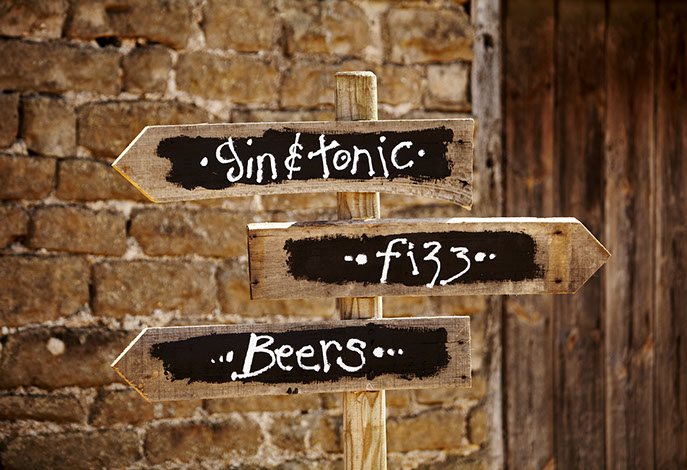 ·gin & tonic·
··fizz··
··Beers···